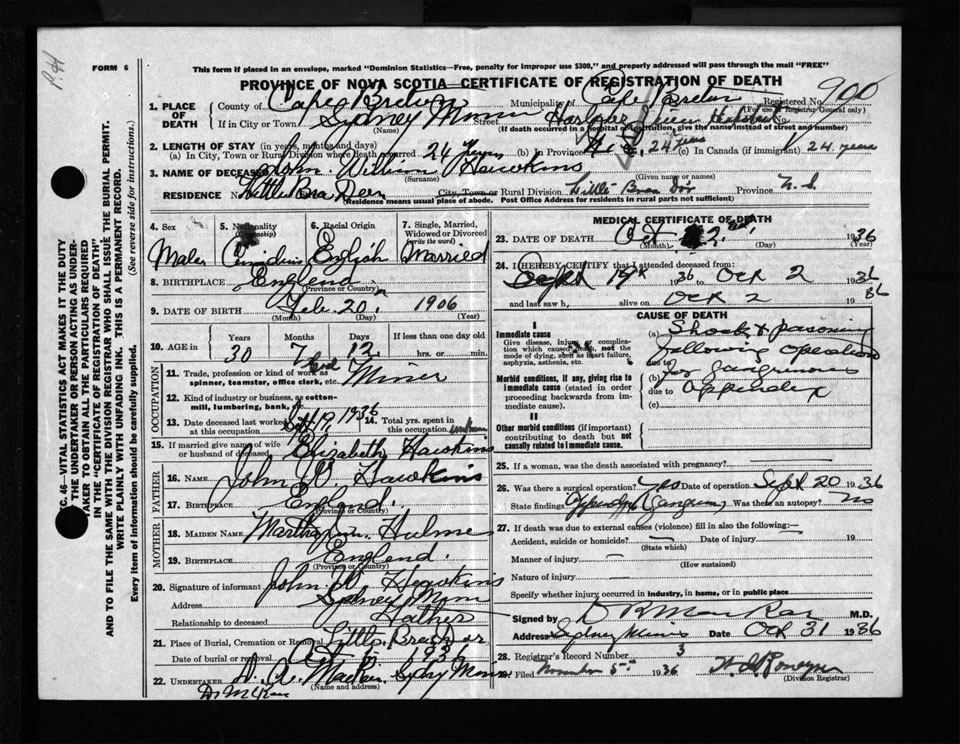 P. H
FORM 6
This form if placed in an envelope, marked "Dominion Statistics—Free, penalty for improper use $300," and properly addressed will pass through the mail "FREE"
PROVINCE OF NOVA SCOTIA—CERTIFICATE OF REGISTRATION OF DEATH
900
1. PLACE OF DEATH County of Cape Breton Municipality Cape Breton Registered No.
(For use of Registrar General only)
If in City or Town Sydney Mines Street Harbor View Hospital
(Name) (If death occurred in a hospital or institution, give the name instead of street and number)
2. LENGTH OF STAY (in years, months and days)
(a) In City, Town or Rural Division where death occurred 24 years (b) In Province 24 years (c) In Canada (if immigrant) 24 years
3. NAME OF DECEASED John William Hawkins
(Surname) (Given name or names)
RESIDENCE No. Little Bras Dor City, Town or Rural Division Little Bras Dor Province N. S.
(Residence means usual place of abode. Post Office Address for residents in rural parts not sufficient)
4. Sex 5. Nationality (Citizenship) 6. Racial Origin 7. Single, Married, Widowed or Divorced (write the word)
Male Canadian English Married
8. BIRTHPLACE England
(Province or Country)
9. DATE OF BIRTH Feb. 20 1906
(Month) (Day) (Year)
10. AGE in Years Months Days If less than one day old
30 7 12 hrs. or min.
11. Trade, profession or kind of work as spinner, teamster, office clerk, etc. Coal Miner
12. Kind of industry or business, as cotton-mill, lumbering, bank, &c.
13. Date deceased last worked at this occupation 1936 14. Total yrs. spent in this occupation
15. If married give name of wife or husband of deceased Elizabeth Hawkins
FATHER
16. Name John W. Hawkins
17. Birthplace England.
(Province or Country)
MOTHER
18. Maiden Name Martha Hulme
19. Birthplace England.
(Province or Country)
20. Signature of informant John W. Hawkins
Address Sydney Mines
Relationship to deceased Father
21. Place of Burial, Cremation or Removal Little Bras dor
Date of burial or removal 1936
22. UNDERTAKER Sydney Mines
(Name and address)
OCCUPATION
MEDICAL CERTIFICATE OF DEATH
23. DATE OF DEATH Oct 2nd, 1936
(Month) (Day) (Year)
24. I HEREBY CERTIFY that I attended deceased from:
Sept 19th 1936 to Oct 2 1936
and last saw h alive on Oct 2 1936
CAUSE OF DEATH
I
Immediate cause
Give disease, injury or complication which caused death, not the mode of dying, such as heart failure, asphyxia, asthenia, etc.
(a) Shock & poisoning
due to following operation
Morbid conditions, if any, giving rise to immediate cause (stated in order proceeding backwards from immediate cause)
(b) for gangrenous
due to Appendix
(c)
II
Other morbid conditions (if important) contributing to death but not causally related to immediate cause.
25. If a woman, was the death associated with pregnancy?
26. Was there a surgical operation? Yes Date of operation Sept 20 1936
State findings Appendix Gangrene Was there an autopsy? No
27. If death was due to external causes (violence) fill in also the following:—
Accident, suicide or homicide? — Date of injury 19
(State which)
Manner of injury —
(How sustained)
Nature of injury —
Specify whether injury occurred in industry, in home, or in public place
Signed by M.D.
Address Sydney Mines Date Oct 31 1936
28. Registrar's Record Number 3
Filed November 5th 1936
(Division Registrar)
SEC. 46—VITAL STATISTICS ACT MAKES IT THE DUTY
OF THE UNDERTAKER OR PERSON ACTING AS UNDER-
TAKER TO OBTAIN ALL THE PARTICULARS REQUIRED
IN THE "CERTIFICATE OF REGISTRATION OF DEATH"
AND TO FILE THE SAME WITH THE DIVISION REGISTRAR WHO SHALL ISSUE THE BURIAL PERMIT.
WRITE PLAINLY WITH UNFADING INK. THIS IS A PERMANENT RECORD.
Every item of information should be carefully supplied. (See reverse side for instructions.)